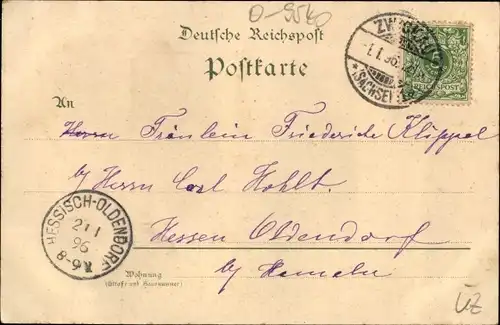 O-9540
Deutsche Reichspost
Postkarte
ZWICKAU
1.1.96.
*(SACHSEN)
REICHSPOST
An
Herrn Fräulein Friederike Klüppel
b/ Herrn Carl Hohlt.
Hessen Oldendorf
b/ Hameln
HESSISCH-OLDENDORF
2 1 1
96
8-9 V
Wohnung
(Straße und Hausnummer)
ÜZ